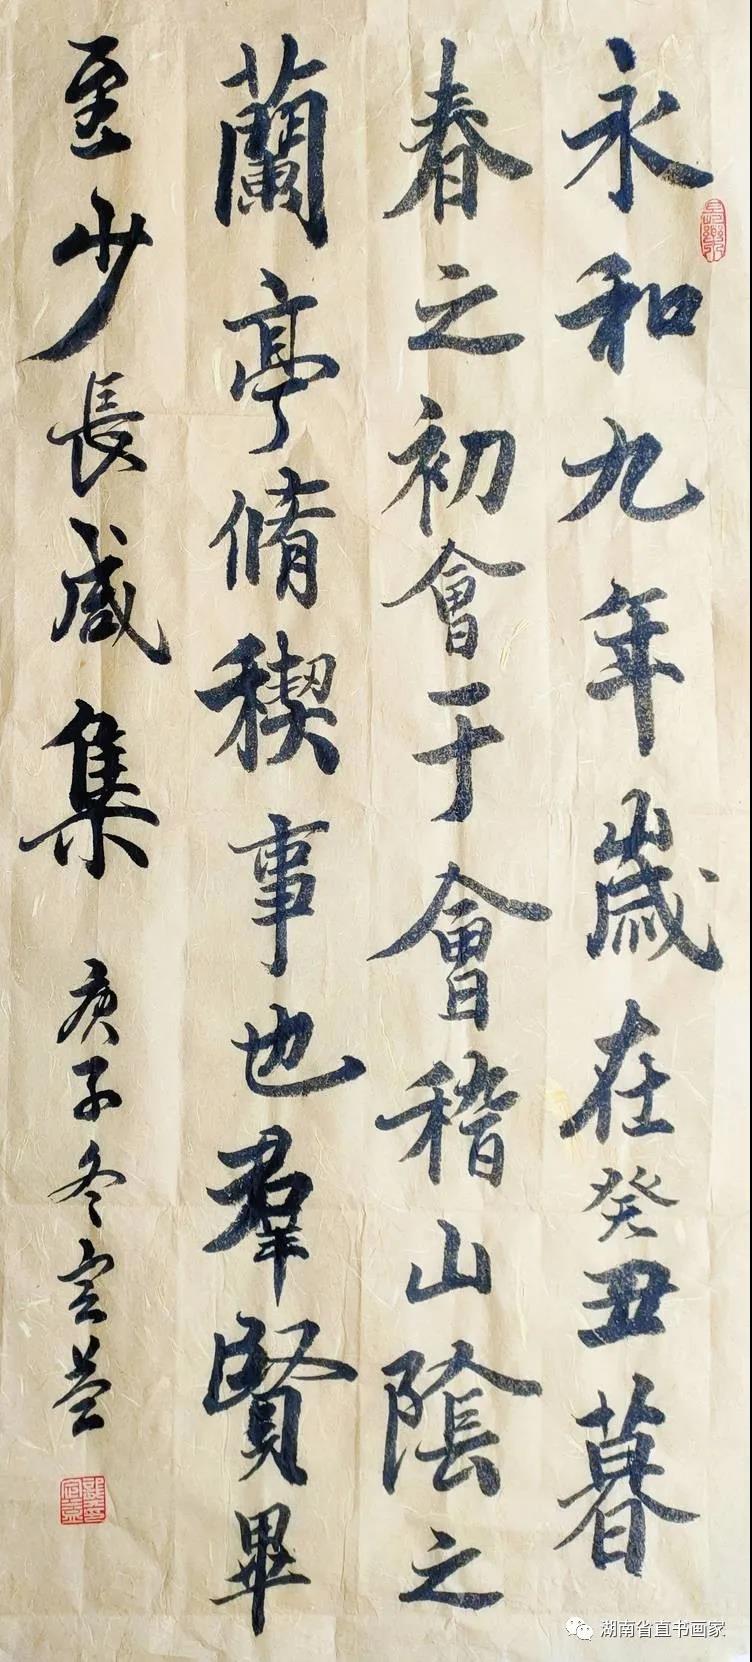 永和九年歲在癸丑暮
春之初會于會稽山陰之
蘭亭脩稧事也羣賢畢
至少長咸集
庚子冬宏益
長樂
湖南省直书画家